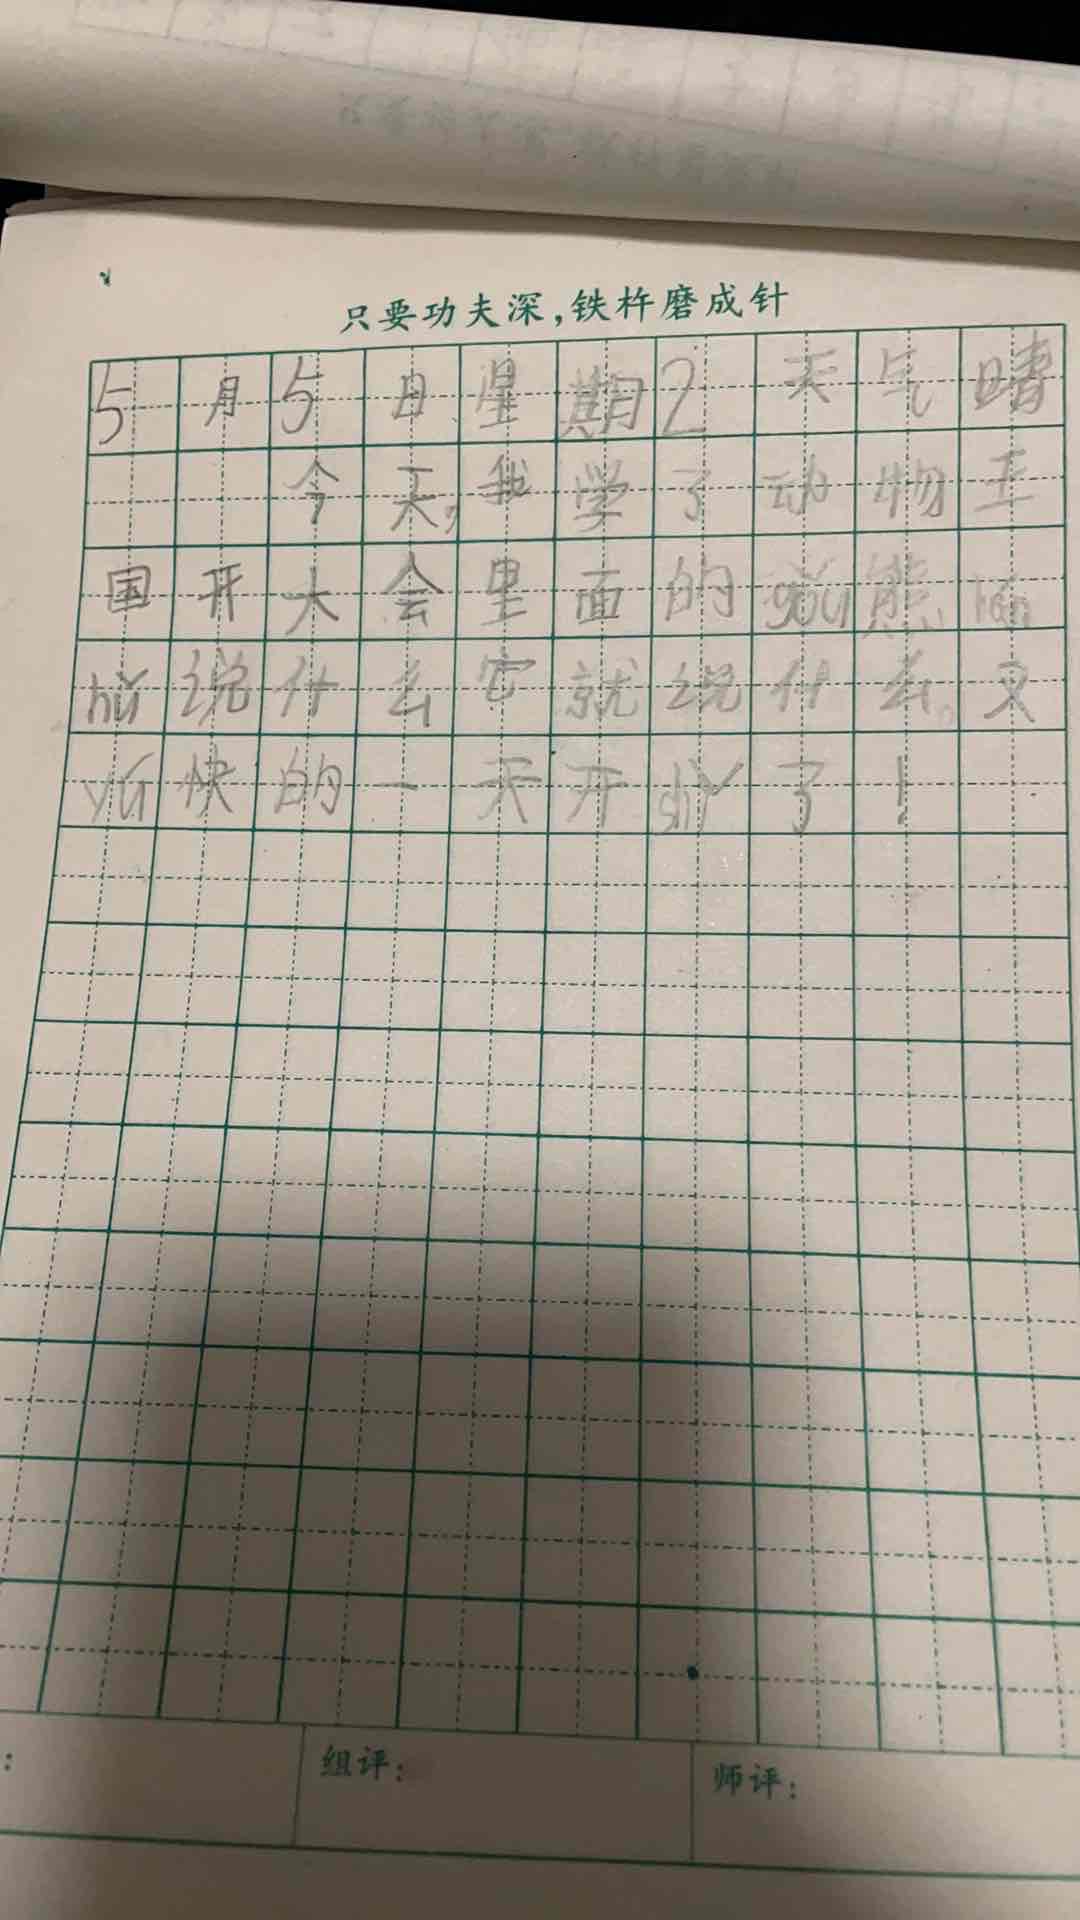 只要功夫深,铁杵磨成针
5月5日星期2天气晴
今天,我学了动物王
国开大会里面的gǒu熊,lǎo
hǔ说什么它就说什么。又
yú快的一天开shǐ了!
组评:
师评: